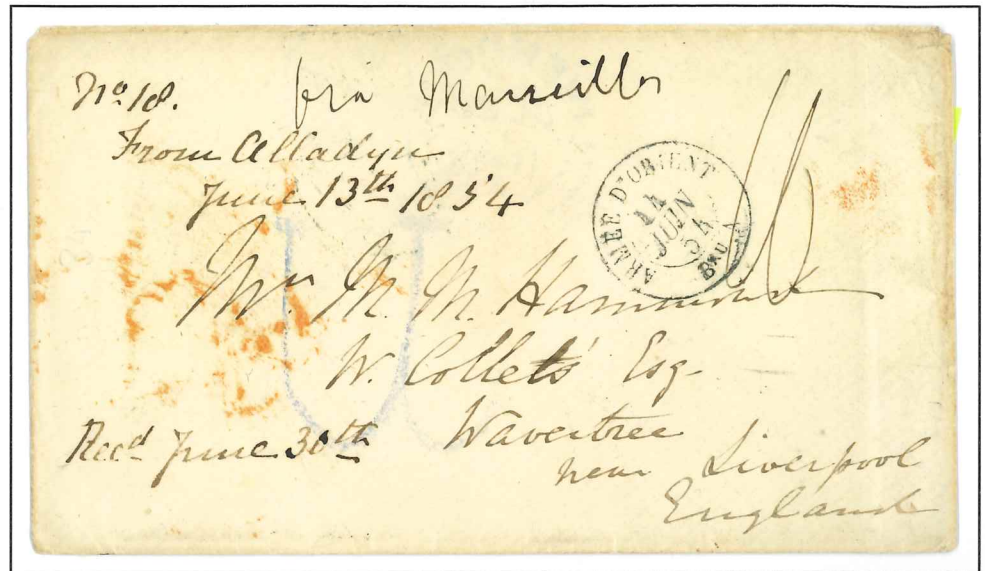 No. 18.
via Marseilles
From Alladyn
June 13th 1854
ARMÉE D'ORIENT
14
JUIN
54
BAU A
Mrs. M. M. Hammond
W. Collets' Esq.
Wavertree
near Liverpool
England
Recd June 30th